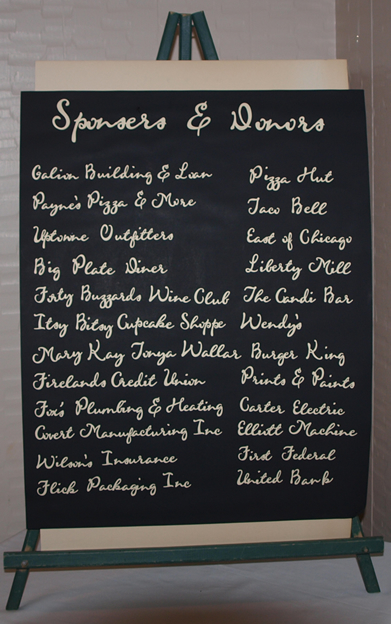 Sponsers & Donors
Galion Building & Loan
Payne's Pizza & More
Uptowne Outfitters
Big Plate Diner
Forty Buzzards Wine Club
Itsy Bitsy Cupcake Shoppe
Mary Kay Tonya Wallar
Firelands Credit Union
Fox's Plumbing & Heating
Covert Manufacturing Inc
Wilson's Insurance
Flick Packaging Inc
Pizza Hut
Taco Bell
East of Chicago
Liberty Mill
The Candi Bar
Wendy's
Burger King
Prints & Paints
Carter Electric
Elliott Machine
First Federal
United Bank